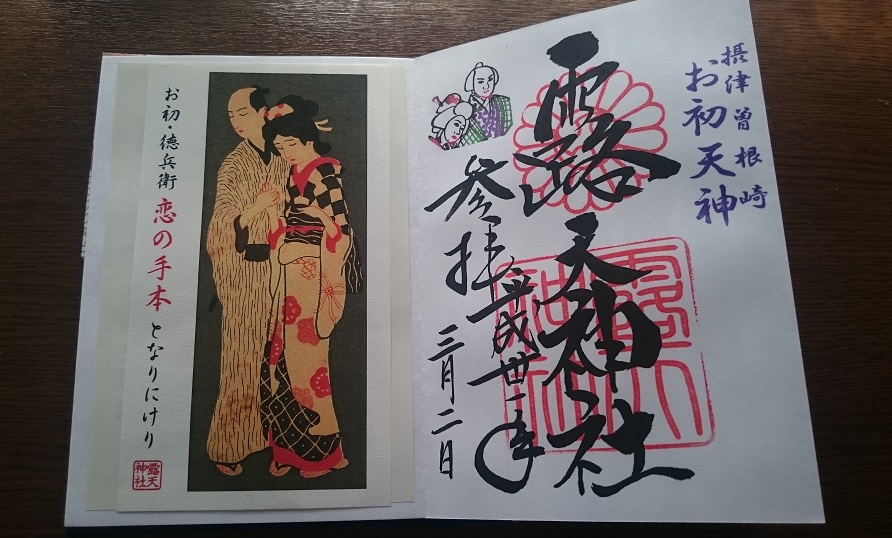 摂津曽根崎
お初天神
露天神社
参拝
平成卅一年
三月二日
お初・徳兵衛
恋の手本
となりにけり
露天
神社